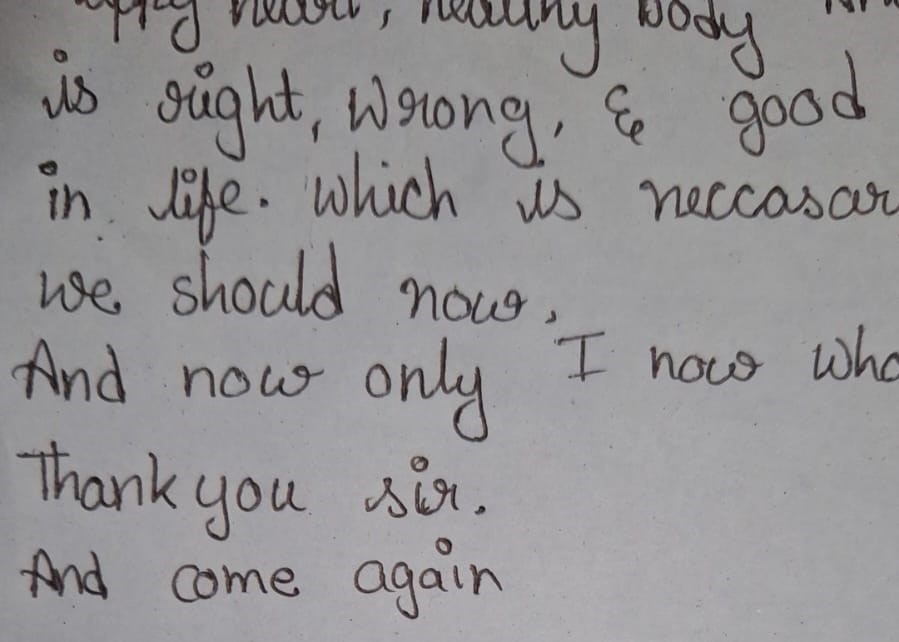 healthy body
is right, wrong, & good
in life. which is neccasar
we should now,
And now only I now
Thank you sir.
And come again